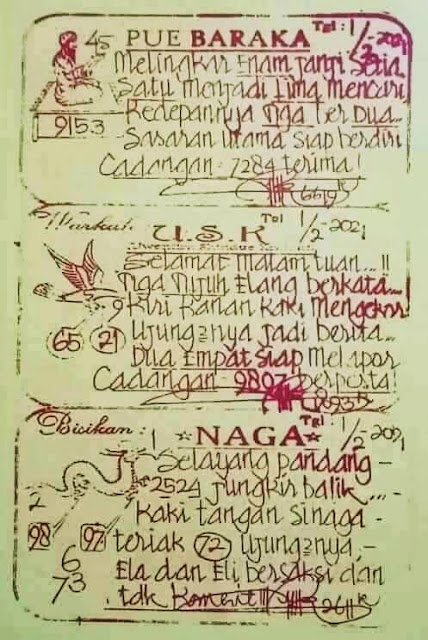 45 PUE BARAKA Tgl: 1/2-2021
Melingkar Enam Janji Setia
Satu Menjadi Lima Mencari
Kedepannya Tiga Ter Dua...
9153
Sasaran Utama Siap berdiri
Cadangan: 7284 terima!
6619
Warkat: U.S.K Tgl 1/2-2021
Selamat Malam tuan...!!
Tiga Tujuh Elang berkata....
9 Kiri Kanan Kaki Mengekor
65 21 Ujung2nya Jadi berita...
Dua Empat Siap Melapor
Cadangan 9807 berpesta!
8935
Bisikan: 1 ☆NAGA☆ Tgl 1/2-2021
Selayang pandang -
2524 Jungkir balik... -
2 Kaki tangan Sinaga -
98 97 teriak 72 Ujung2nya, -
6 Ela dan Eli, bersaksi dan
73 tdk Koment!!
2611